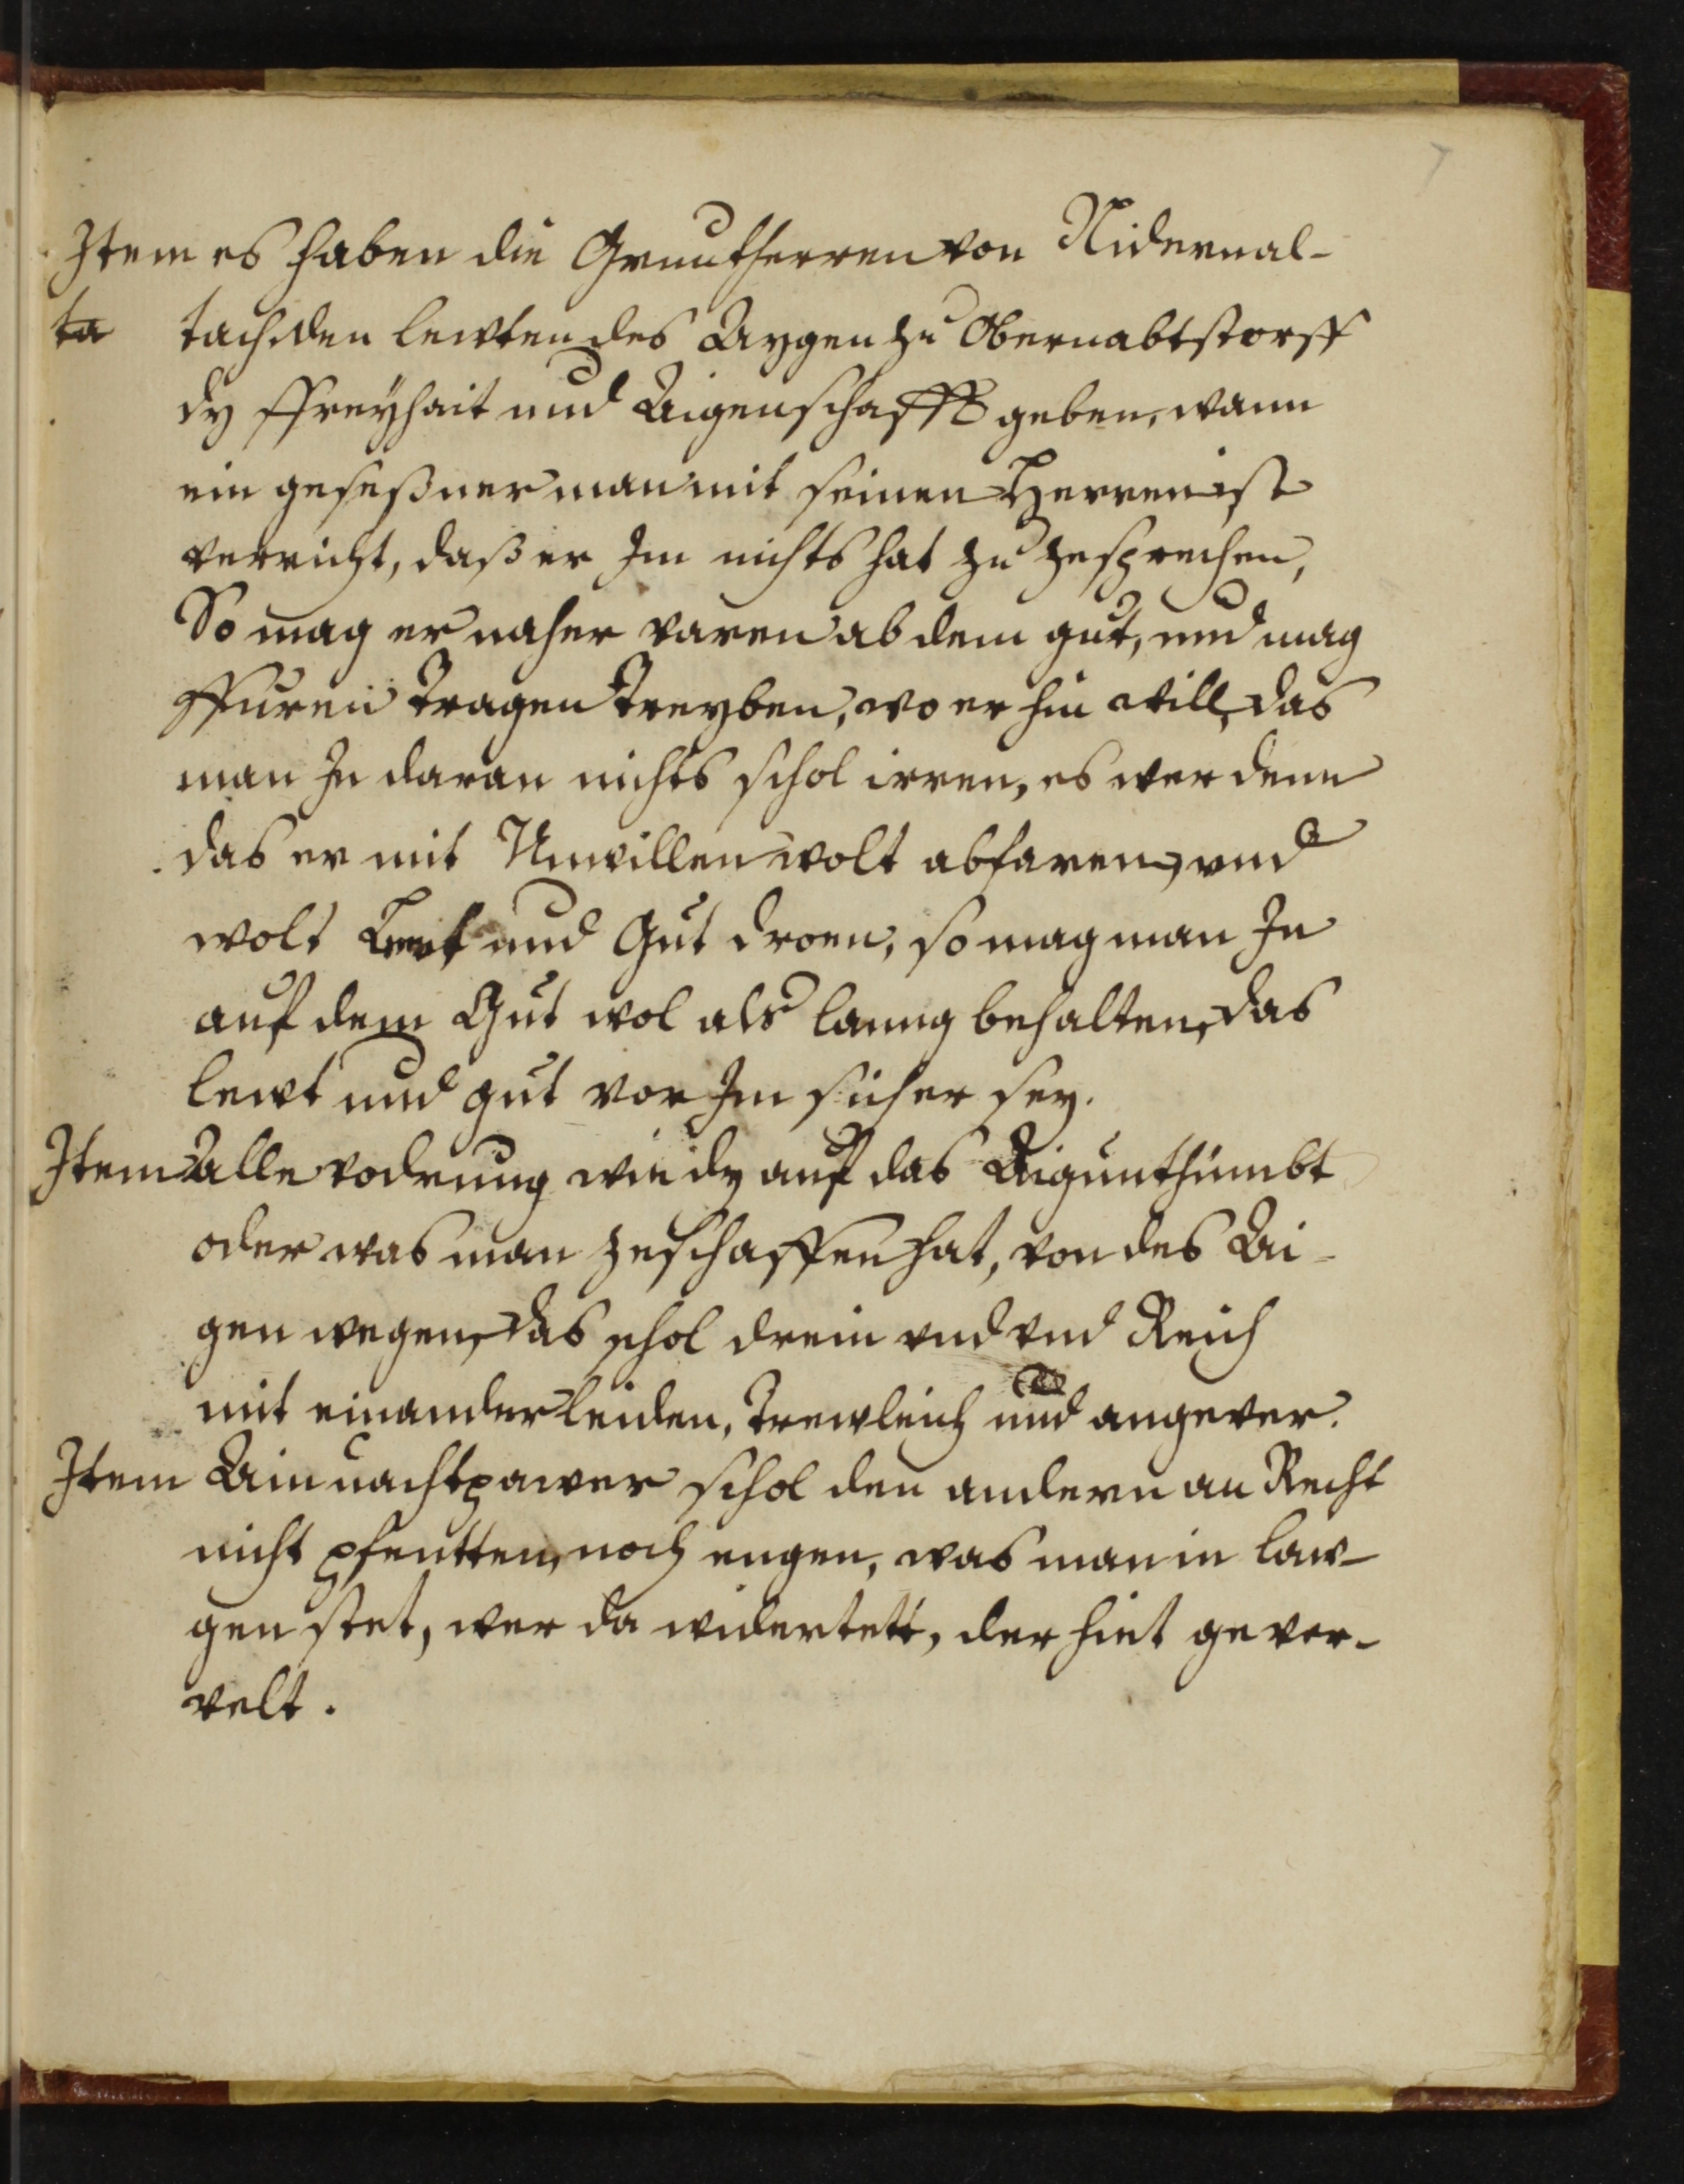 7
Item es haben die Gruntherren von Nidernal-
ta tach den lewten des Aygen zu Obernabtstorff
dy ffreyhait und Aigenschafft geben, wann
ein geseßner man mit seinen Herren ist
verricht, daß er Im nichts hat zu zesprechen,
So mag er naher varen ab dem gut, und mag
ffuren tragen treyben, wo er hin will, das
man In daran nichts schol irren, es wer denn
das er mit Unwillen wolt abfaren, und
wolt Lewt und Gut droen, so mag man In
auf dem Gut wol als lanng behalten, das
lewt und gut vor Im sicher sey.
Item Alle vodrung wie dy auf das Aigunthumbt
oder was man zeschaffen hat, von des Ai-
gen wegen, das schol drein vnd vnd Reich
mit einander leiden, trewleich und angever.
Item Ain nachtpawer schol den andern an Recht
nicht pfentten, noch engen, was man in law-
gen stet, wer da widertett, der hiet gever-
velt.